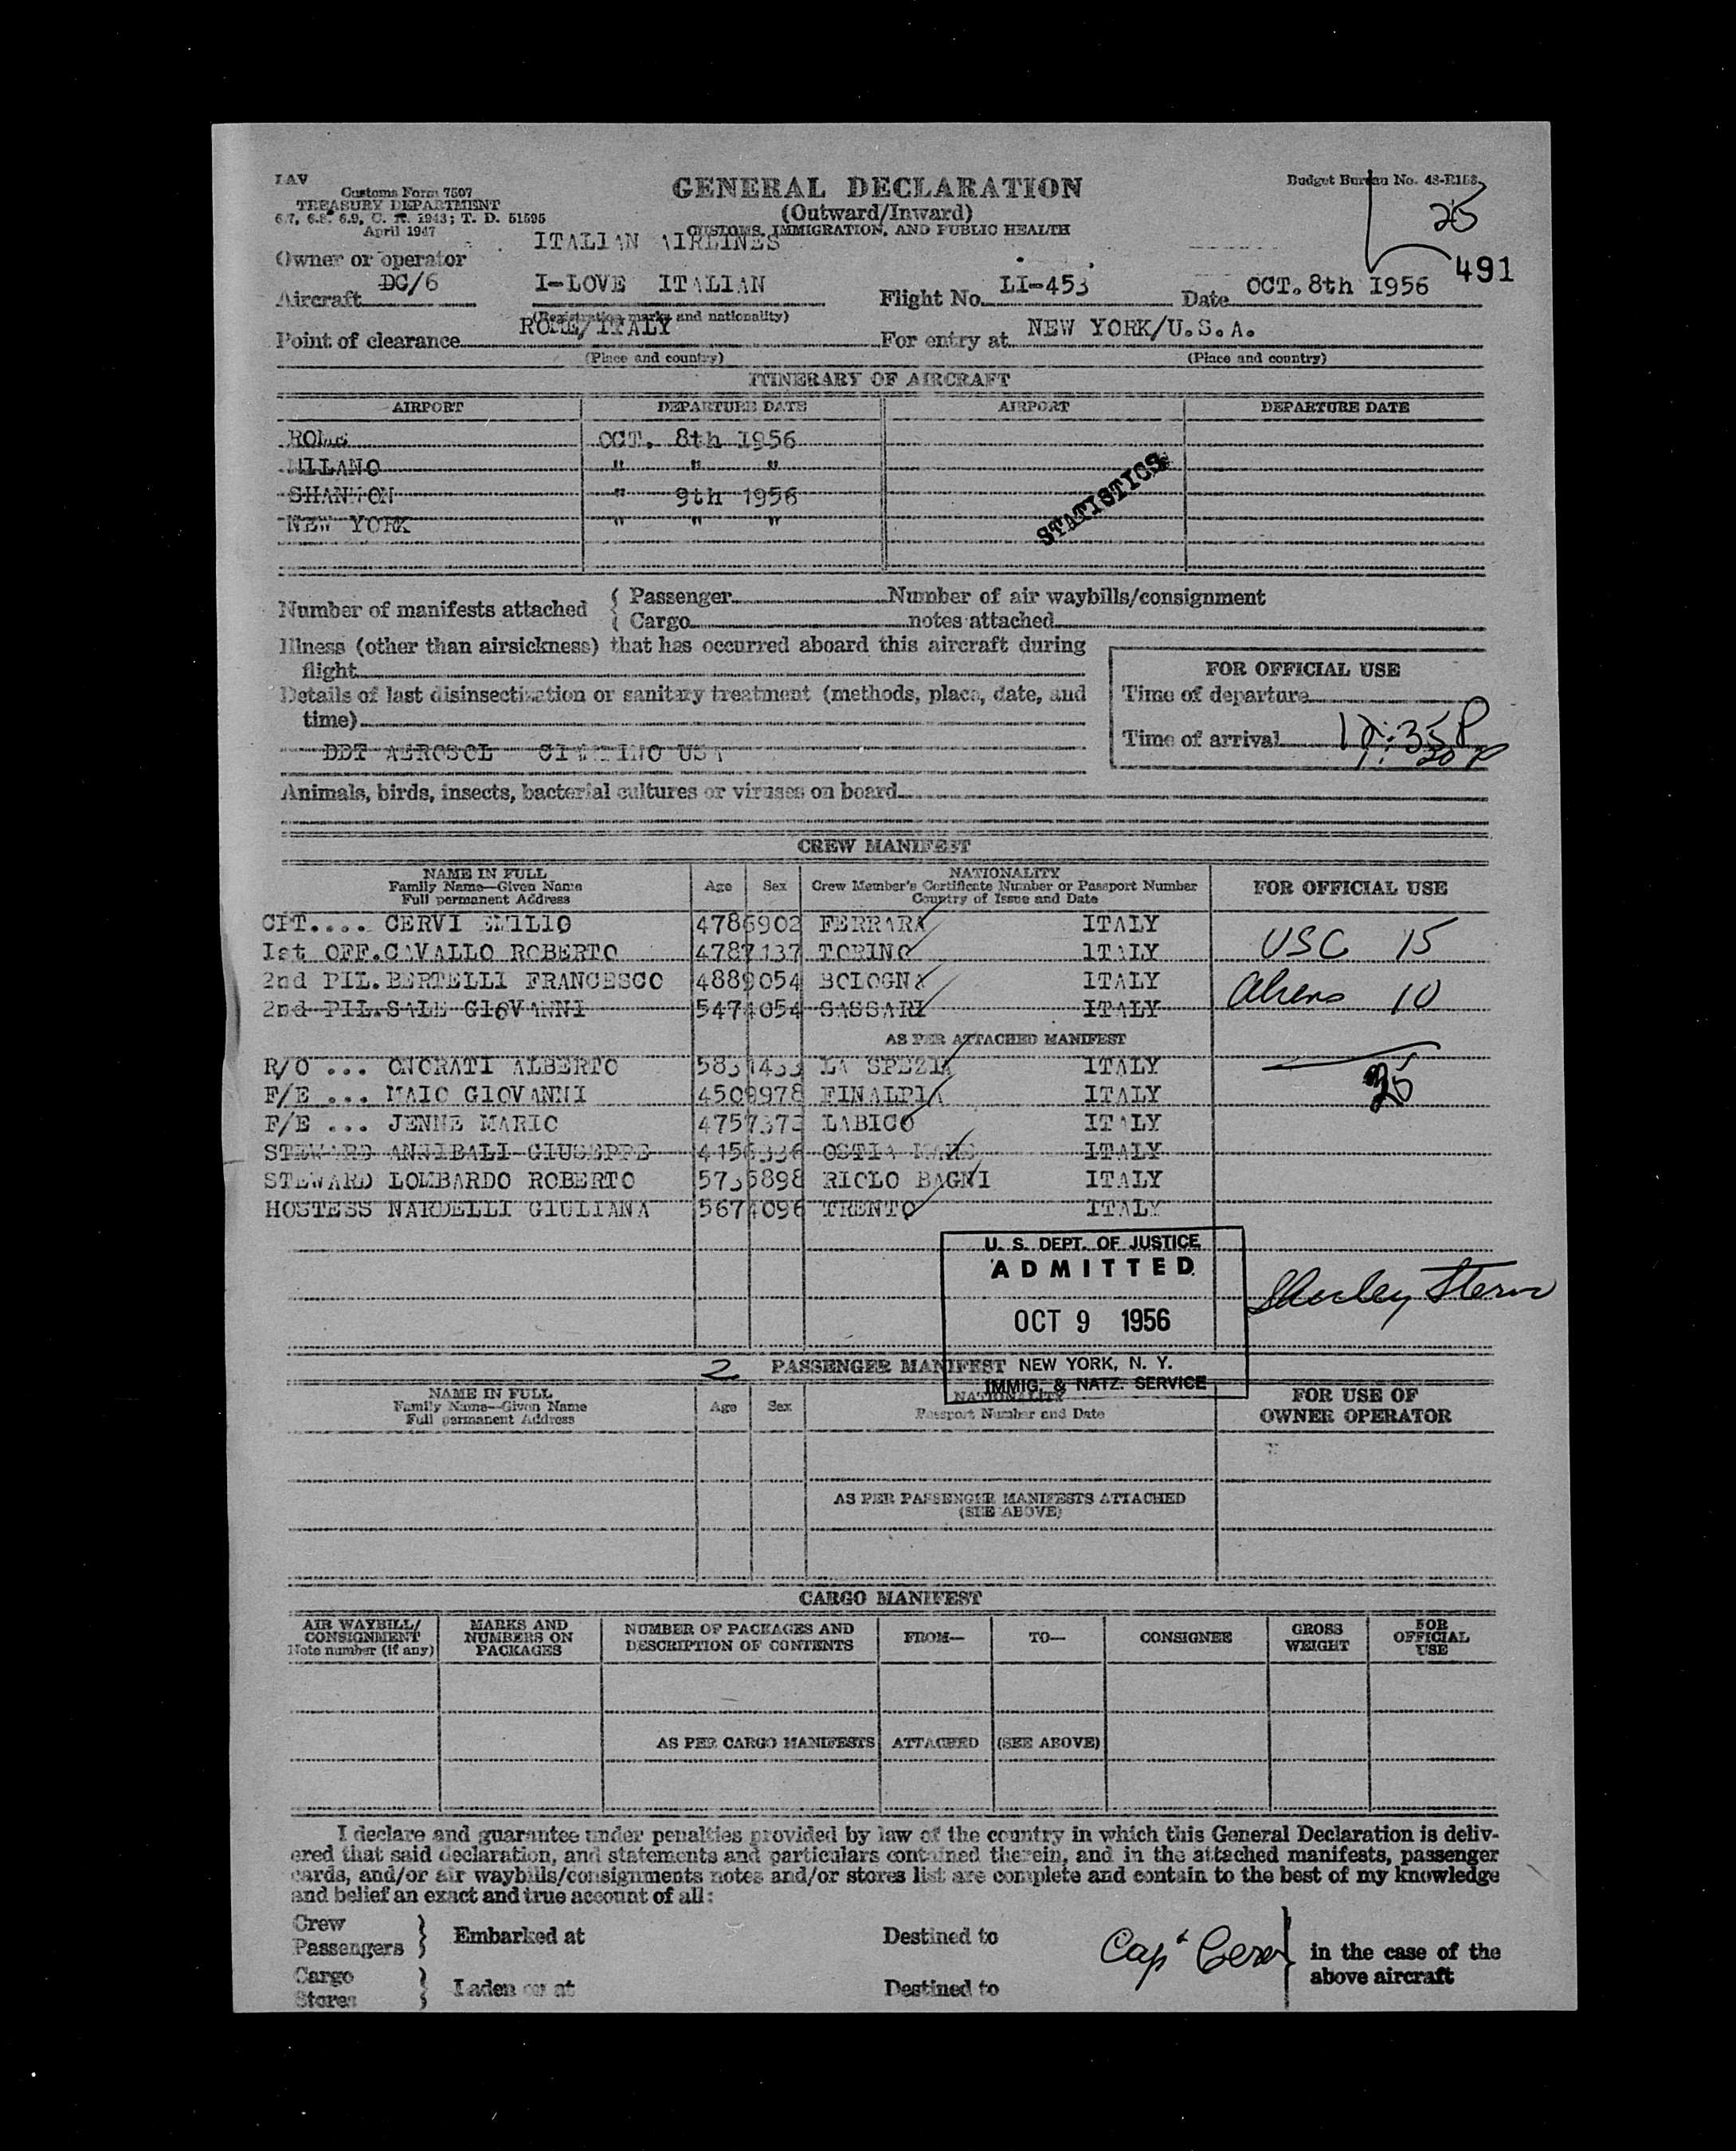 LAV
Customs Form 7507
TREASURY DEPARTMENT
6.7, 6.8, 6.9, C. R. 1943; T. D. 51595
April 1947
GENERAL DECLARATION
(Outward/Inward)
CUSTOMS, IMMIGRATION, AND PUBLIC HEALTH
Budget Bureau No. 48-R158
25
491
Owner or operator ITALIAN AIRLINES
Aircraft DC/6 I-LOVE ITALIAN Flight No. LI-453 Date OCT. 8th 1956
(Registration marks and nationality)
Point of clearance ROME/ITALY For entry at NEW YORK/U.S.A.
(Place and country) (Place and country)
ITINERARY OF AIRCRAFT
AIRPORT DEPARTURE DATE AIRPORT DEPARTURE DATE
ROME OCT. 8th 1956
MILANO " " "
SHANNON " 9th 1956
NEW YORK " " "
STATISTICS
Number of manifests attached { Passenger Number of air waybills/consignment
{ Cargo notes attached
Illness (other than airsickness) that has occurred aboard this aircraft during
flight
Details of last disinsectization or sanitary treatment (methods, place, date, and
time)
DDT AEROSOL CIAMPINO
FOR OFFICIAL USE
Time of departure
Time of arrival 12:35P
Animals, birds, insects, bacterial cultures or viruses on board
CREW MANIFEST
NAME IN FULL
Family Name—Given Name
Full permanent Address
Age Sex
NATIONALITY
Crew Member's Certificate Number or Passport Number
Country of Issue and Date
FOR OFFICIAL USE
CPT.... CERVI EMILIO 4786902 FERRARA ITALY
1st OFF. CAVALLO ROBERTO 4787137 TORINO ITALY
2nd PIL. BERTELLI FRANCESCO 4889054 BOLOGNA ITALY
2nd PIL. SALE GIOVANNI 5474054 SASSARI ITALY
AS PER ATTACHED MANIFEST
R/O ... ONORATI ALBERTO LA SPEZIA ITALY
F/E ... MAIO GIOVANNI 4500978 FINALPIA ITALY
F/E ... JENNE MARIO LABICO ITALY
STEWARD ANNIBALI GIUSEPPE OSTIA MARE ITALY
STEWARD LOMBARDO ROBERTO RIOLO BAGNI ITALY
HOSTESS NARDELLI GIULIANA 5674096 TRENTO ITALY
USC 15
Aliens 10
25
U. S. DEPT. OF JUSTICE
ADMITTED
OCT 9 1956
NEW YORK, N. Y.
IMMIG. & NATZ. SERVICE
Shirley Stern
2 PASSENGER MANIFEST
NAME IN FULL
Family Name—Given Name
Full permanent Address
Age Sex
NATIONALITY
Passport Number and Date
FOR USE OF
OWNER OPERATOR
AS PER PASSENGER MANIFESTS ATTACHED
(SEE ABOVE)
CARGO MANIFEST
AIR WAYBILL/
CONSIGNMENT
Note number (if any)
MARKS AND
NUMBERS ON
PACKAGES
NUMBER OF PACKAGES AND
DESCRIPTION OF CONTENTS
FROM— TO— CONSIGNEE
GROSS
WEIGHT
FOR
OFFICIAL
USE
AS PER CARGO MANIFESTS ATTACHED (SEE ABOVE)
I declare and guarantee under penalties provided by law of the country in which this General Declaration is deliv-
ered that said declaration, and statements and particulars contained therein, and in the attached manifests, passenger
cards, and/or air waybills/consignments notes and/or stores list are complete and contain to the best of my knowledge
and belief an exact and true account of all:
Crew
Passengers } Embarked at Destined to
Cargo
Stores } Laden on at Destined to
Capt
in the case of the
above aircraft